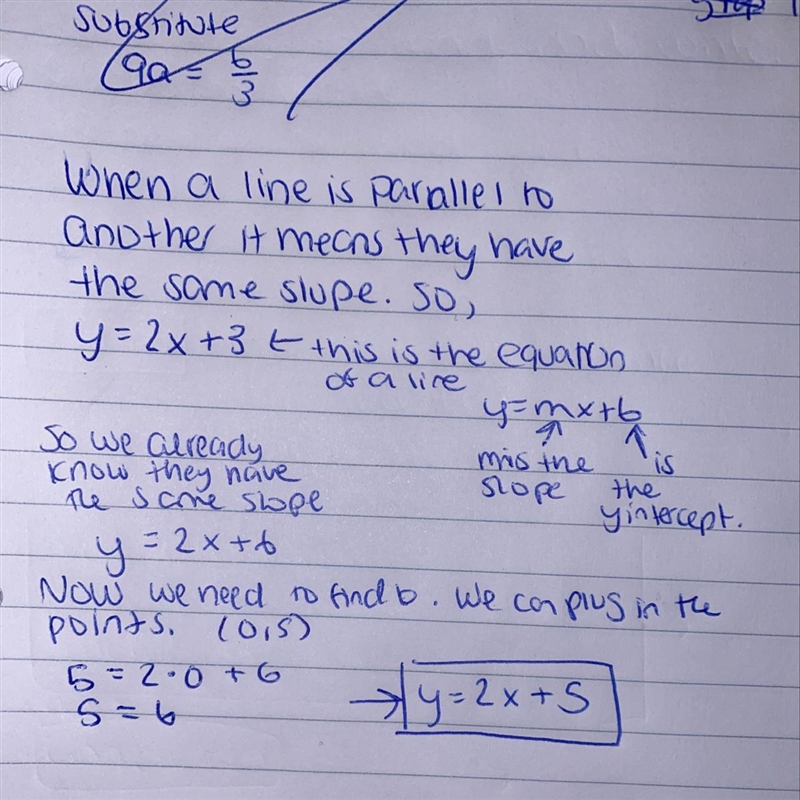 Substitute
9a = b/3
When a line is parallel to
another it means they have
the same slope. So,
y = 2x + 3 ← this is the equation
of a line
y = mx + b
m is the
slope
is
the
y intercept.
So we already
know they have
the same slope
y = 2x + b
Now we need to find b. We can plug in the
points. (0,5)
5 = 2·0 + b
5 = b
→ y = 2x + 5